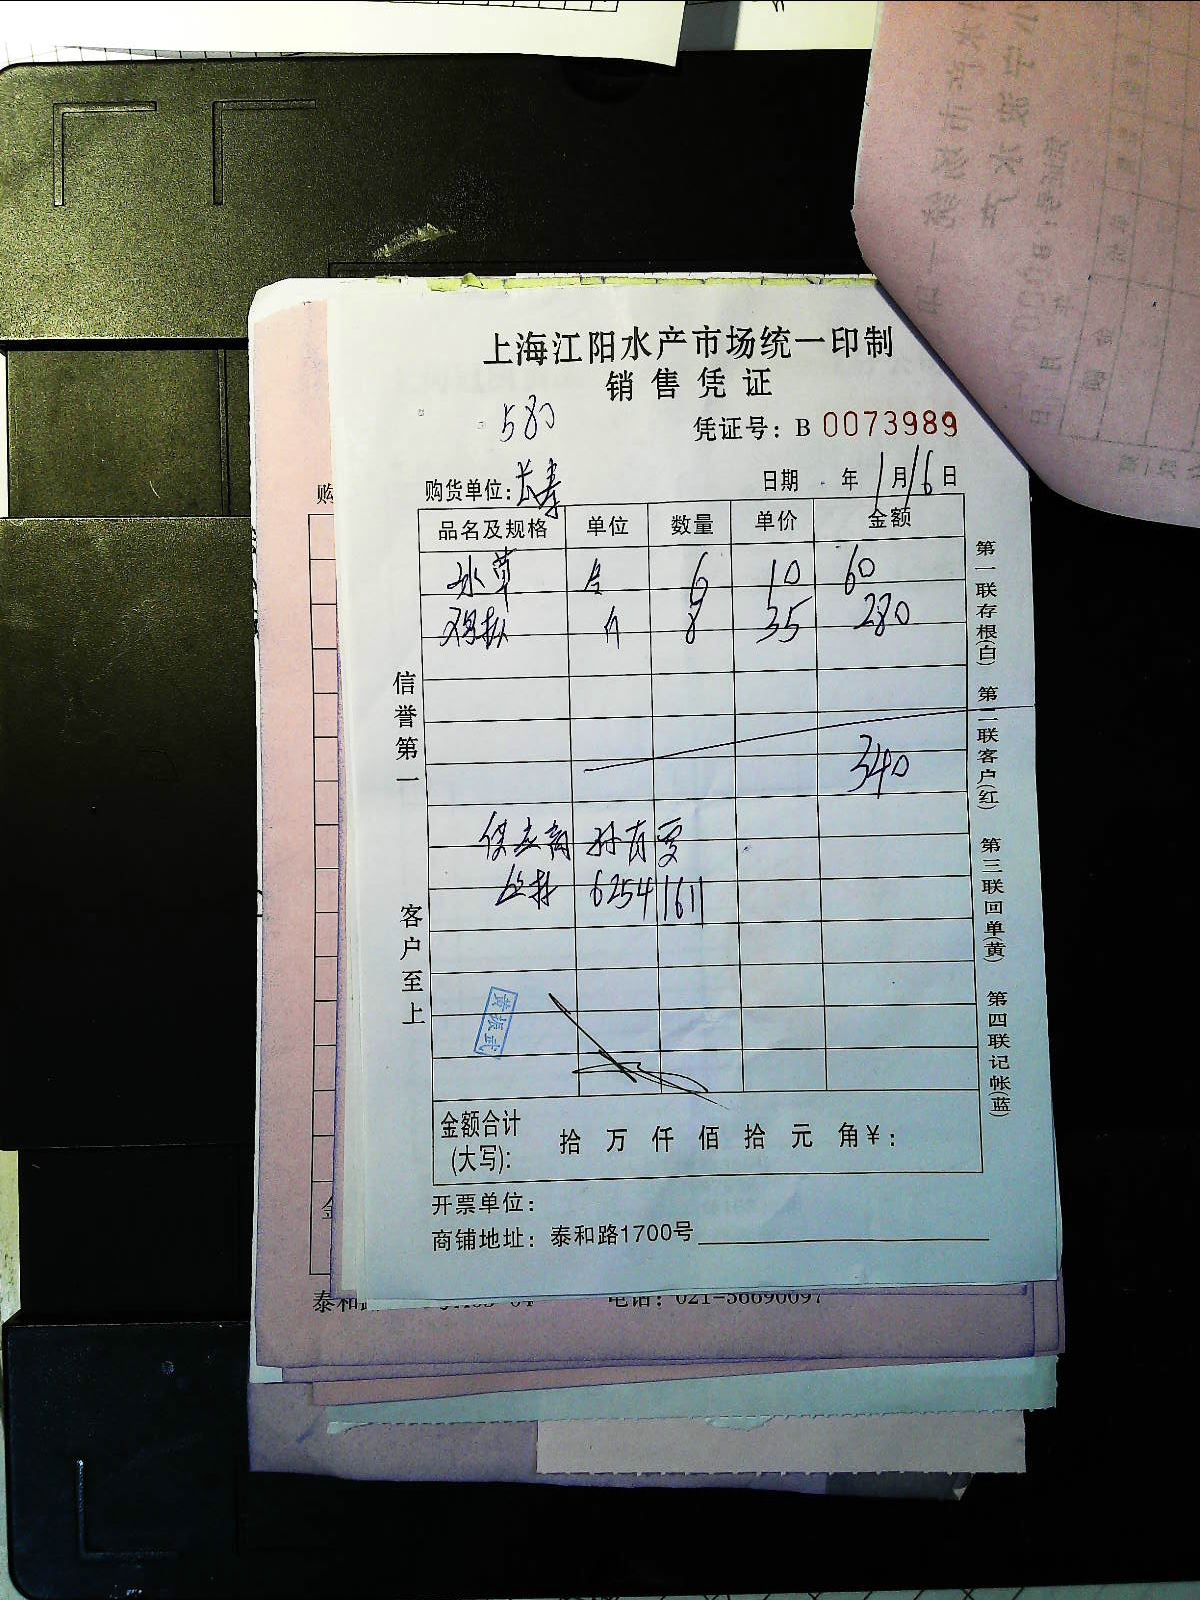 上海江阳水产市场统一印制
销售凭证
580
凭证号: B 0073989
购货单位: 长寿
日期 年 1月16日
品名及规格 单位 数量 单价 金额
水草 6 10 60
8 35 280
340
供应商 孙有
6254 1611
黄振武
金额合计
(大写): 拾 万 仟 佰 拾 元 角 ¥:
开票单位:
商铺地址: 泰和路1700号
信誉第一
客户至上
第一联存根(白) 第二联客户(红) 第三联回单(黄) 第四联记帐(蓝)
购
金
泰和
电话: 021-56690097